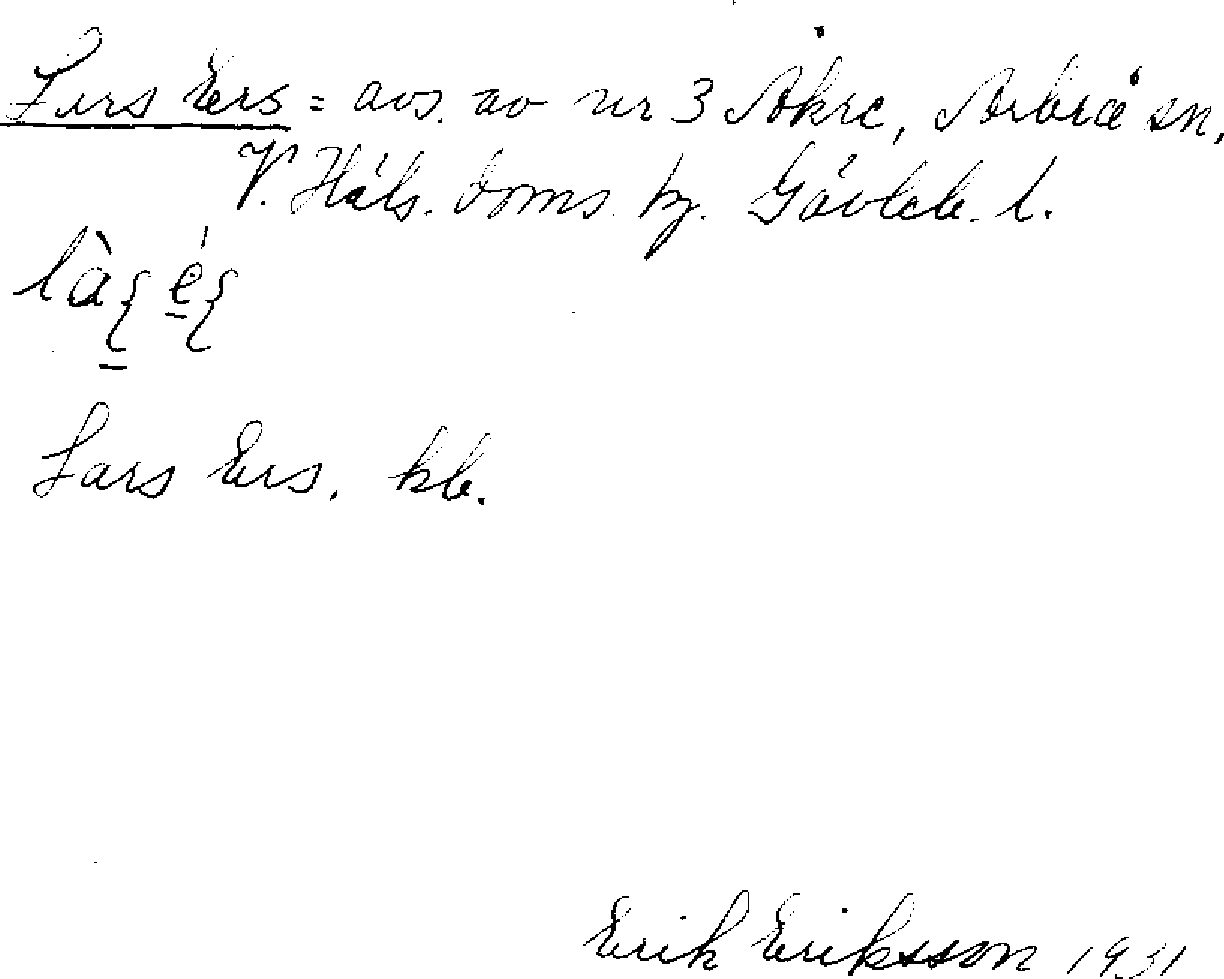 Lars Ers = avs. av nr 3 Åkre, Arbrå sn,
V. Häls. doms. hj. Gävleb. l.
Lars Ers. kb.
Erik Eriksson 1931